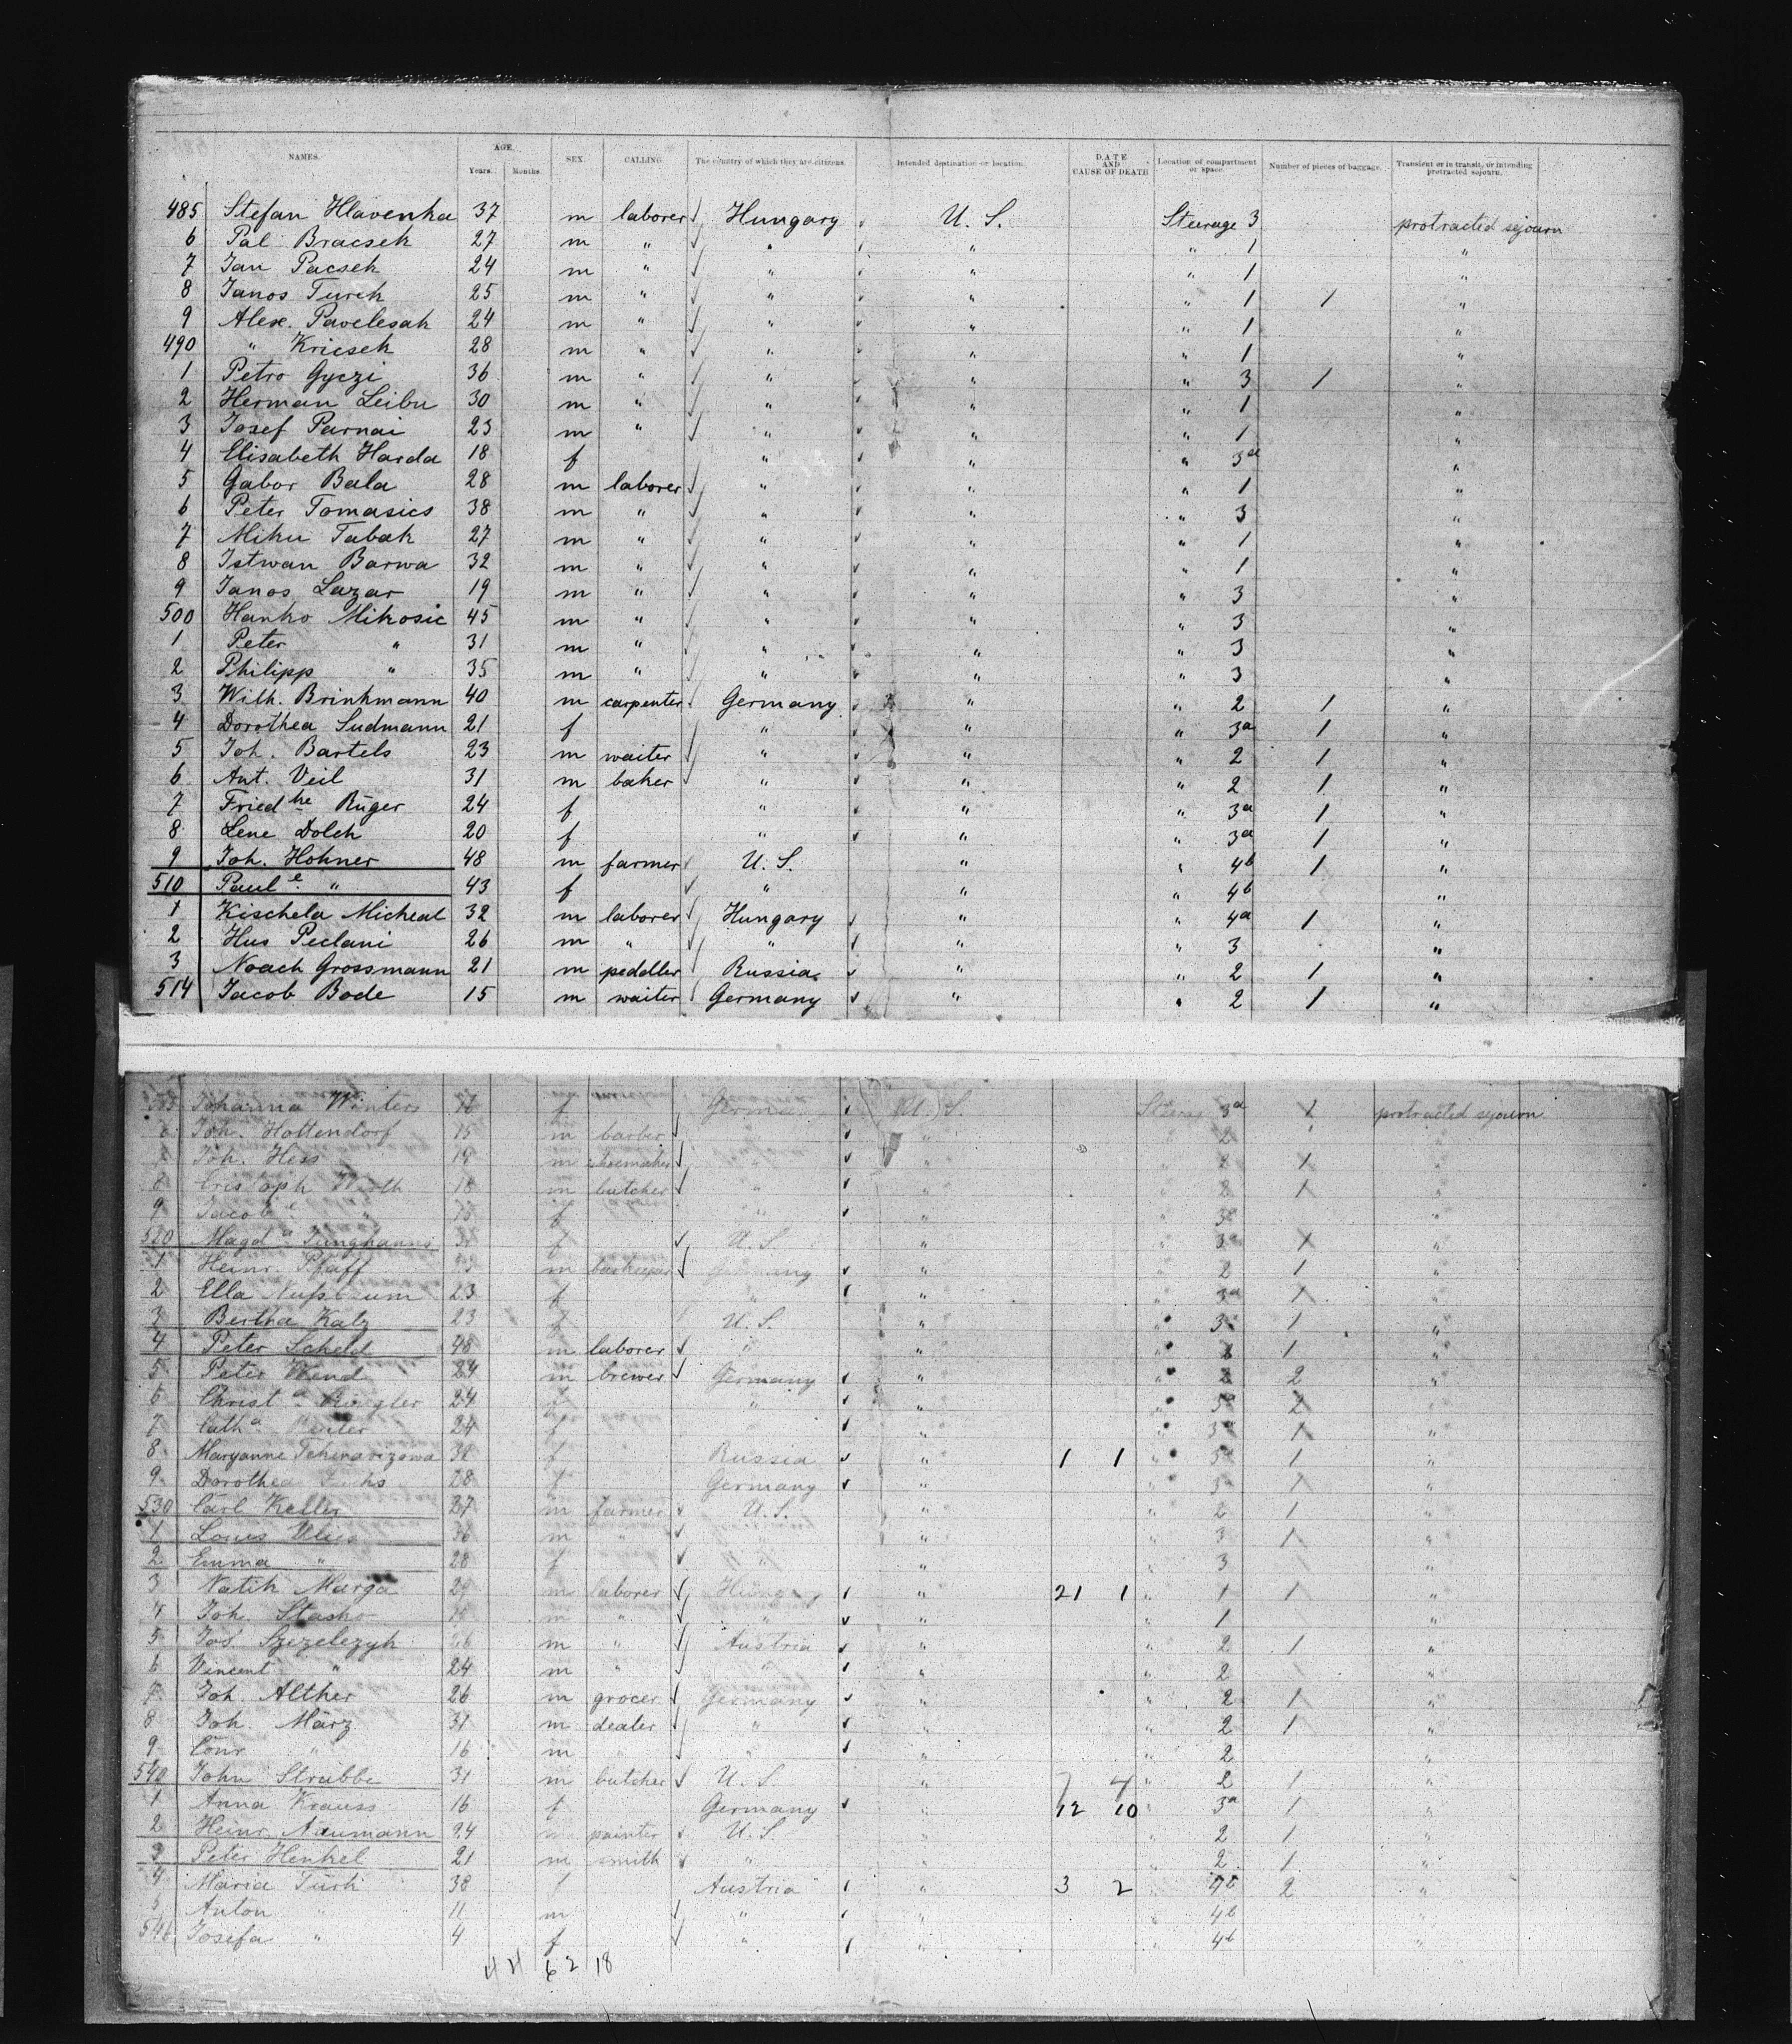 NAMES. AGE. SEX. CALLING. The country of which they are citizens. Intended destination or location. DATE AND CAUSE OF DEATH Location of compartment or space. Number of pieces of baggage. Transient or in transit, or intending protracted sejourn.
Years. Months.
485 Stefan Hlavenka 37 m laborer Hungary U. S. Steerage 3 protracted sejourn
6 Pal Bracsek 27 m " " " " 1 "
7 Jan Pacsek 24 m " " " " 1 "
8 Janos Turek 25 m " " " " 1 1 "
9 Alex. Pavelesak 24 m " " " " 1 "
490 " Kricsek 28 m " " " " 1 "
1 Petro Gyczi 36 m " " " " 3 1 "
2 Herman Leibu 30 m " " " " 1 "
3 Josef Parnai 23 m " " " " 1 "
4 Elisabeth Harda 18 f " " " 3a "
5 Gabor Bala 28 m laborer " " " 1 "
6 Peter Tomasics 38 m " " " " 3 "
7 Miku Tabak 27 m " " " " 1 "
8 Istwan Barwa 32 m " " " " 1 "
9 Janos Lazar 19 m " " " " 3 "
500 Hanko Mikosic 45 m " " " " 3 "
1 Peter " 31 m " " " " 3 "
2 Philipp " 35 m " " " " 3 "
3 Wilh. Brinkmann 40 m carpenter Germany " " 2 1 "
4 Dorothea Sudmann 21 f " " " 3a 1 "
5 Joh. Bartels 23 m waiter " " " 2 1 "
6 Ant. Veil 31 m baker " " " 2 1 "
7 Friedke Rüger 24 f " " " 3a 1 "
8 Lene Dolch 20 f " " " 3a 1 "
9 Joh. Hohner 48 m farmer U. S. " " 4b 1 "
510 Paule " 43 f " " " 4b "
1 Kischela Micheal 32 m laborer Hungary " " 4a 1 "
2 Hus Peclani 26 m " " " " 3 "
3 Noach Grossmann 21 m peddler Russia " " 2 1 "
514 Jacob Bode 15 m waiter Germany " " 2 1 "
Johanna Winters f U. S. 3a 1 protracted sejourn
6 Joh. Hottendorf 15 m barber " " 2 "
7 Joh. Hess 19 m shoemaker " " 2 1 "
8 18 m butcher " " 2 1 "
9 Jacobe " f " " 3a "
520 Magda Junghanns f U. S. " " 3a 1 "
1 Heinr. Pfaff m " " 2 1 "
2 Ella 23 f " " " 3a 1 "
3 Bertha Katz 23 f U. S. " " 3a 1 "
4 Peter Scheld 48 m laborer " " " 2 1 "
5 Peter Wend 24 m brewer Germany " " 2 2 "
6 Christa 24 f " " " 2 "
7 Catha 24 f " " " 3a 1 "
8 Maryanne f Russia " 1 1 " 1 "
9 Dorothea 28 f Germany " " 3a 1 "
530 Carl Keller 27 m farmer U. S. " " 2 1 "
1 Louis 36 m " " " " 3 1 "
2 Emma " 28 f " " " 3 "
3 Natik Marga 29 m laborer Hungary " 21 1 " 1 1 "
4 Joh. Stasko m " " " " 1 "
5 Jos. Szezelezyk m " Austria " " 2 1 "
6 Vincent " 24 m " " " " 2 "
7 Joh. Alther 26 m grocer Germany " " 2 1 "
8 Joh. März 31 m dealer " " " 2 1 "
9 Conr. " 16 m " " " " 2 "
540 John Strubbe 31 m butcher U. S. " 7 4 " 2 1 "
1 Anna Krauss 16 f Germany " 12 10 " 3a 1 "
2 Heinr. Naumann 24 m painter U. S. " " 2 1 "
3 Peter Henkel 21 m smith " " " 2 1 "
4 Maria Türk 38 f Austria " 3 2 " 4b 2 "
5 Anton " 11 m " " " 4b "
546 Josefa " 4 f " " " 4b "
44 62 18